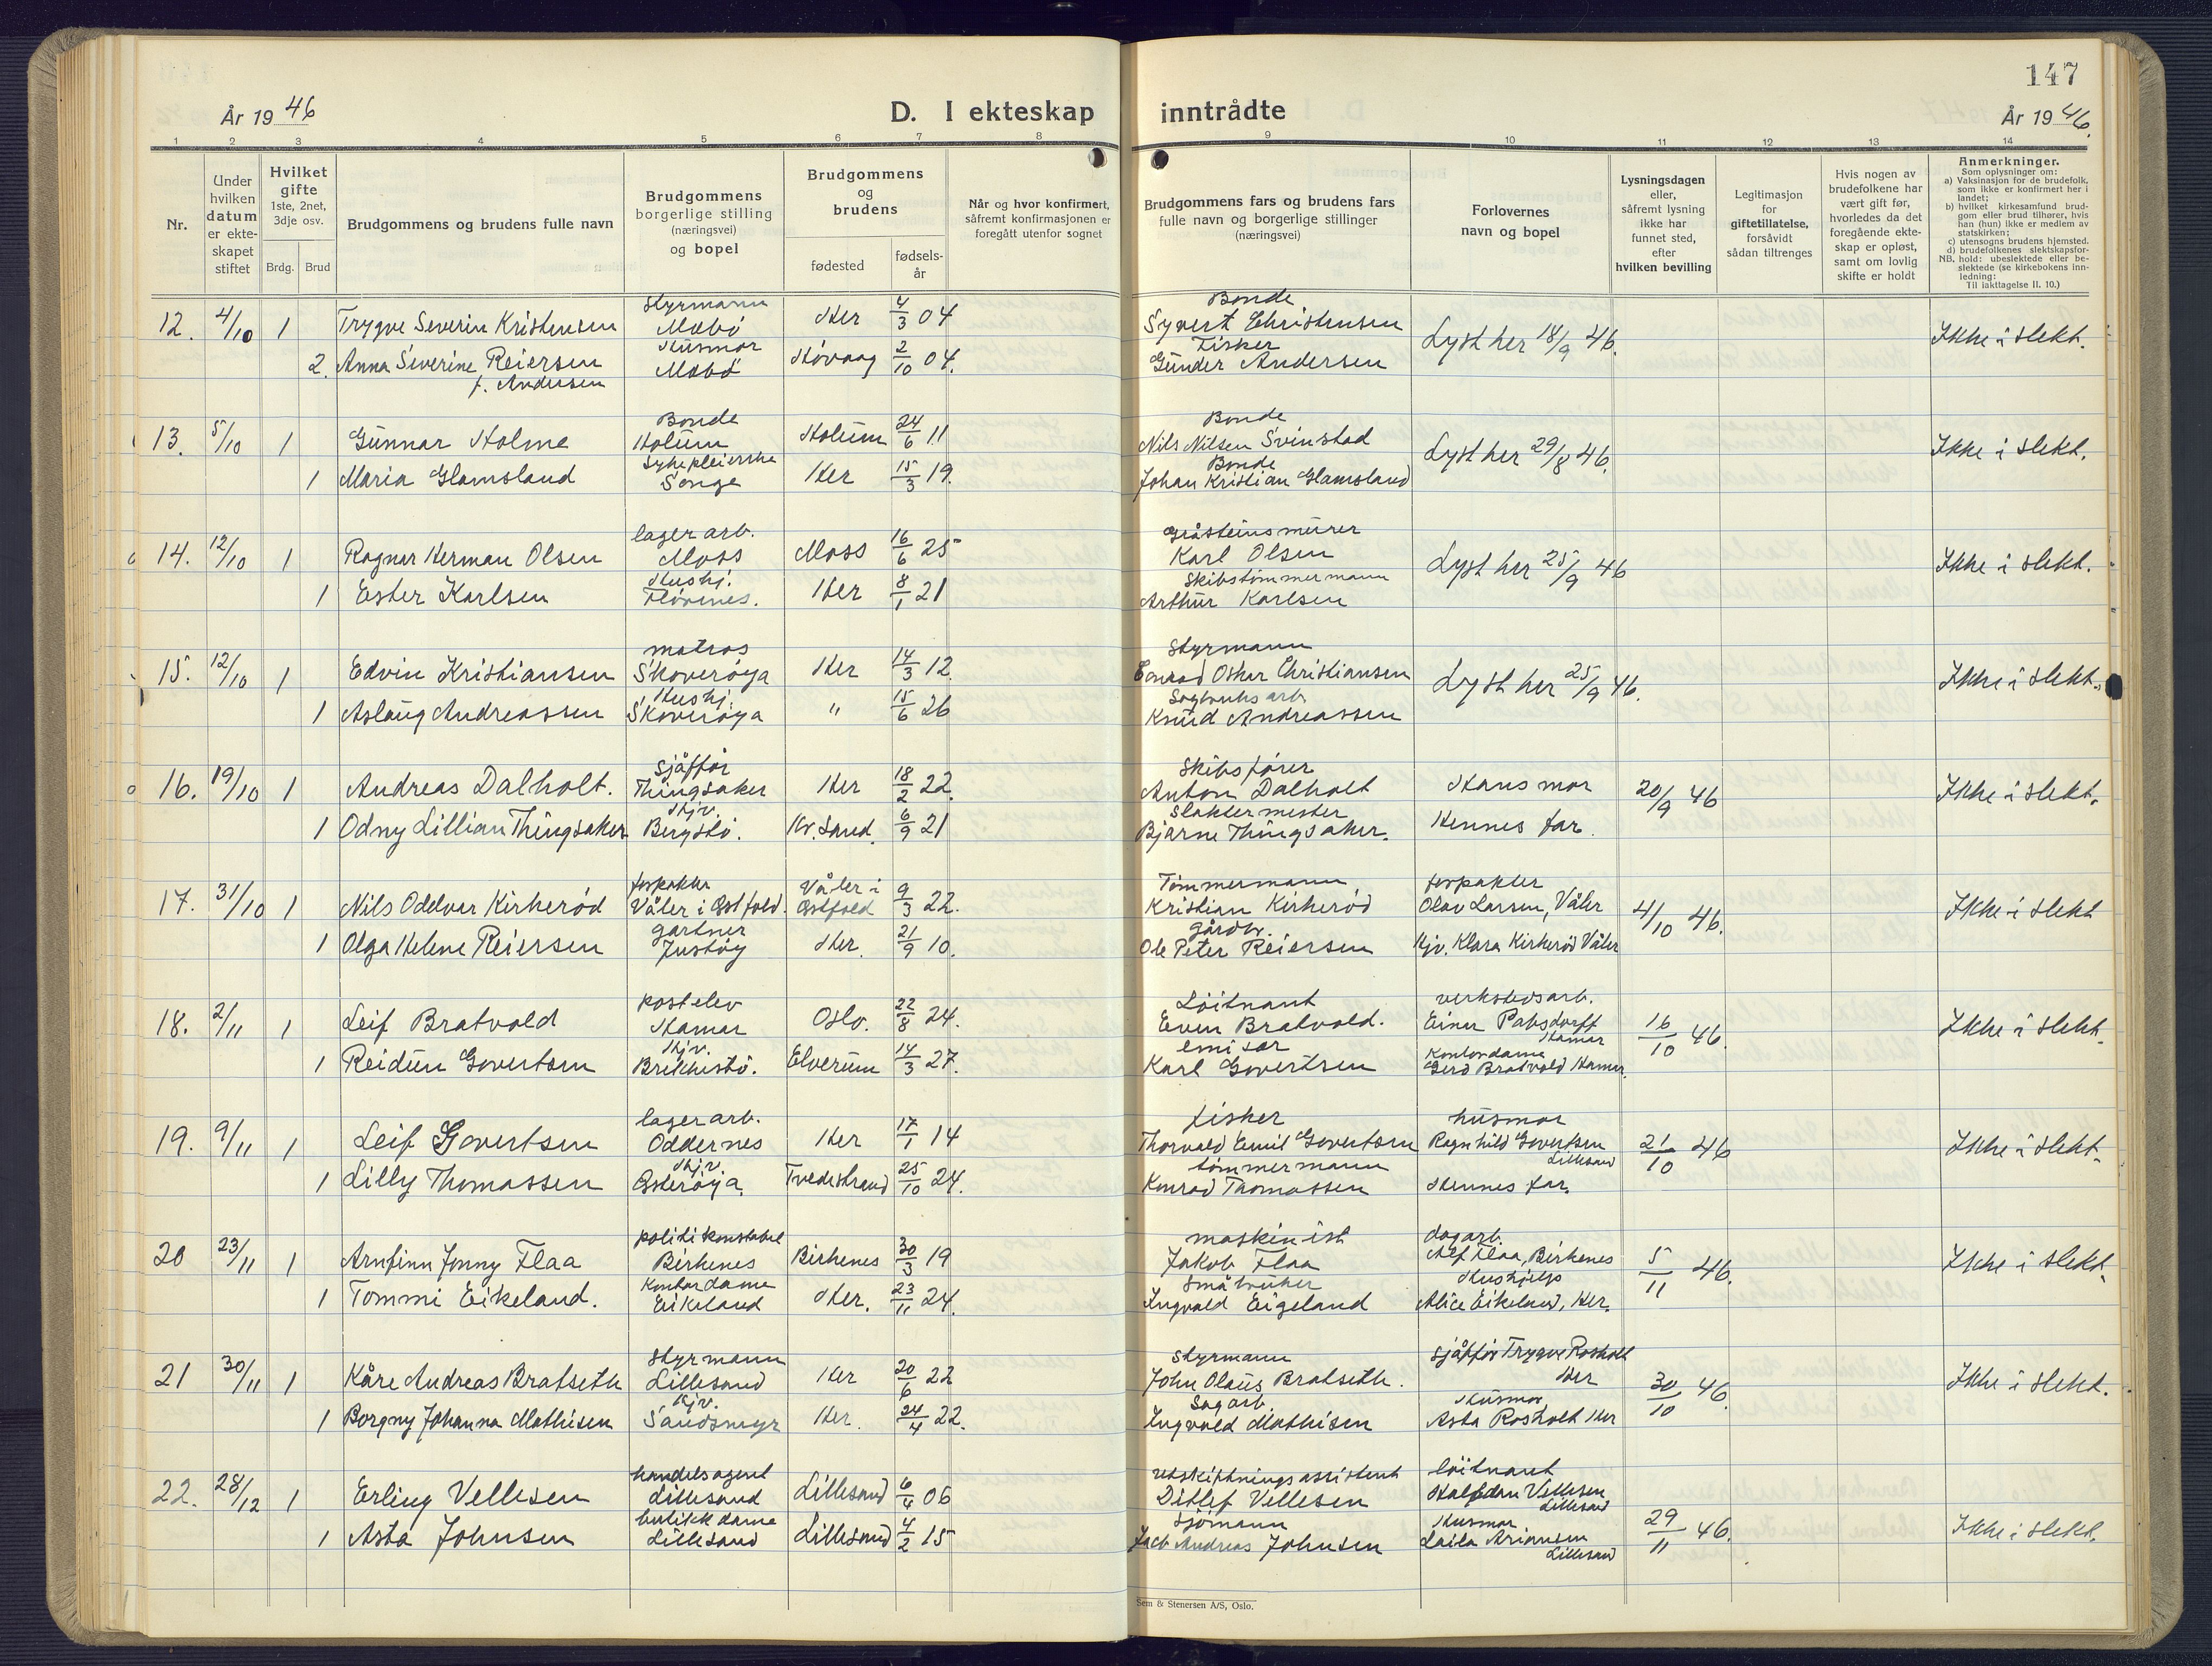 147
År 1946
D. I ekteskap inntrådte
År 1946.
1 2 3 4 5 6 7 8 9 10 11 12 13 14
Nr.
Under hvilken datum er ekte-skapet stiftet
Hvilket gifte 1ste, 2net, 3dje osv.
Brdg. Brud
Brudgommens og brudens fulle navn
Brudgommens borgerlige stilling (næringsvei) og bopel
Brudgommens og brudens
fødested
fødsels-år
Når og hvor konfirmert, såfremt konfirmasjonen er foregått utenfor sognet
Brudgommens fars og brudens fars fulle navn og borgerlige stillinger (næringsvei)
Forlovernes navn og bopel
Lysningsdagen eller, såfremt lysning ikke har funnet sted, efter hvilken bevilling
Legitimasjon for giftetillatelse, forsåvidt sådan tiltrenges
Hvis nogen av brudefolkene har vært gift før, hvorledes da det foregående ekte-skap er opløst, samt om lovlig skifte er holdt
Anmerkninger.
Som oplysninger om:
a) Vaksinasjon for de brudefolk, som ikke er konfirmert her i landet;
b) hvilket kirkesamfund brud-gom eller brud tilhører, hvis han (hun) ikke er medlem av statskirken;
c) utensogns brudens hjemsted.
d) brudefolkenes slektskapsfor-hold: ubeslektede eller be-slektede (se kirkebokens inn-ledning:
NB.
Til iakttagelse II. 10.)
Styrmann Bonde
12. 4/10 1 Trygve Severin Kristensen Mæbø Her 4/3 04 Syvert Christensen Lyst her 18/9 46. Ikke i slekt.
Husmor Fisker
2. Anna Severine Reiersen Mæbø Høvaag 2/10 04. Gunder Andersen
f. Andersen
Bonde Bonde
13. 5/10 1 Gunnar Holme Holum Holum 24/6 11 Nils Nilsen Svinstad Lyst her 29/8 46. Ikke i slekt.
Sykepleierske Bonde
1 Maria Glamsland Songe Her 15/3 19. Johan Kristian Glamsland
lagerarb. Gråsteinsmurer
14. 12/10 1 Ragnar Herman Olsen Moss Moss 16/6 25 Karl Olsen Lyst her 25/9 46 Ikke i slekt.
Hushj. Skibstømmermann
1 Ester Karlsen Her 8/1 21 Arthur Karlsen
matros Styrmann
15. 12/10 1 Edvin Kristiansen Skoverøya Her 14/3 12. Conrad Oskar Christiansen Lyst her 25/9 46. Ikke i slekt.
Hushj. Sagbruks arb.
1 Aslaug Andreassen Skoverøya " 15/6 26 Knud Andreassen
Sjåffør Skibsfører
16. 19/10 1 Andreas Dalholt. Thingsaker Her 18/2 22. Anton Dalholt Hans mor 20/9 46 Ikke i slekt.
Hjv. Slaktermester
1 Odny Lillian Thingsaker Bergstø. Kr.sand. 6/9 21 Bjarne Thingsaker. Hennes far.
forpakter Våler i Tømmermann forpakter
17. 31/10 1 Nils Oddvar Kirkerød Våler i Østfold. Østfold 9/3 22. Kristian Kirkerød Olav Larsen, Våler 4/10 46. Ikke i slekt
gartner gårdbr.
1 Olga Helene Reiersen Justøy Her. 21/9 10. Ole Peter Reiersen Hjv. Klara Kirkerød Våler
postelev Löitnant verkstedsarb.
18. 2/11 1 Leif Bratvold Hamar Oslo. 22/8 24. Even Bratvold. Einar Pabsdorff Hamar 16/10 46. Ikke i slekt.
Hjv. emisær Kontordame
1 Reidun Govertsen Brekkestø. Elverum 14/3 27. Karl Govertsen Gerd Bratvold Hamar.
lagerarb. Fisker husmor
19. 9/11 1 Leif Govertsen Oddernes Her 17/1 14 Thorvald Emil Govertsen Ragnhild Govertsen Lillesand 21/10 46 Ikke i slekt.
Hjv. tømmermann
1 Lilly Thomassen Østerøya. Tvedestrand 25/10 24. Konrad Thomassen Hennes far.
politikonstabel maskinist dagarb.
20 23/11 1 Arnfinn Jonny Flaa Birkenes Birkenes 30/3 19 Jakob Flaa Alf Flaa, Birkenes 5/11 46. Ikke i slekt.
Kontordame Småbruker Hushjelp
1 Tommi Eikeland. Eikeland Her. 23/11 24. Ingvald Eigeland Alice Eikeland, Her.
Styrmann Styrmann Sjåffør Trygve Rosholt
21 30/11 1 Kåre Andreas Bratseth Lillesand Her 20/6 22 John Olaus Bratseth. Her 30/10 46. Ikke i slekt.
Hjv. Sagarb. Husmor
1 Borgny Johanna Mathisen Sandsmyr Her. 24/4 22. Ingvald Mathisen Asta Rosholt Her
handelsagent løitnant
22. 28/12 1 Erling Vellesen Lillesand Lillesand 6/4 06 Ditlef Vellesen Halfdan Vellesen Lillesand 29/11 46. Ikke i slekt.
butikkdame Sjømann Husmor
1 Asta Johnsen Lillesand Lillesand 4/2 15 Jacb Andreas Johnsen Laila Lillesand
Sem & Stenersen A/S, Oslo.